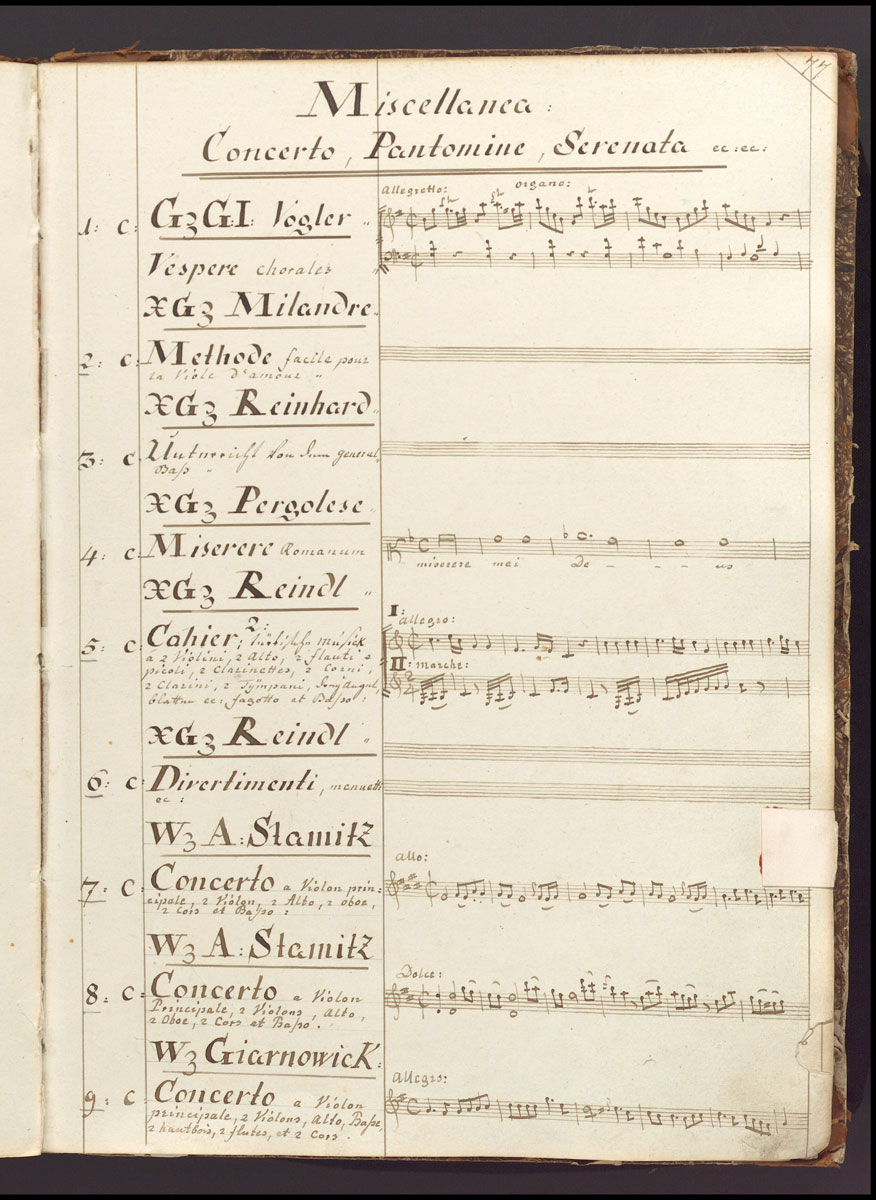 77
Miscellanea:
Concerto, Pantomine, Serenata ec: ec:
Allegretto: organo:
1: C: G3 G:I: Vogler "
Vespere chorales "
XG3 Milandre.
2: C: Methode facile pour
la Viole d'amour "
XG3 Reinhard "
3: C Unterricht Von dem general
Baß "
XG3 Pergolese "
4: C: Miserere Romanum
miserere mei De - - - us
XG3 Reindl "
I:
allegro:
5: C Cahier, 2: türkische musick
a 2 Violini, 2 Alto, 2 flauti 2
II: marche:
picoli, 2 Clarinettes, 2 Corni,
2 Clarini, 2 Tÿmpani,
blatten ec: fagotto et Baßo:
XG3 Reindl "
6: C: Divertimenti, menuetti
ec:
W3 A: Stamitz
allo:
7: C: Concerto a Violon prin=
cipale, 2 Violon, 2 Alto, 2 oboe,
2 Cors et Baßo:
W3 A: Stamitz
Dolce:
8: C: Concerto a Violon
Principale, 2 Violons, Alto,
2 Oboe, 2 Cors et Baßo.
W3 Giarnowick:
allegro:
9: C Concerto a Violon
principale, 2 Violons, Alto, Baße,
2 hautbois, 2 flutes, et 2 Cors.